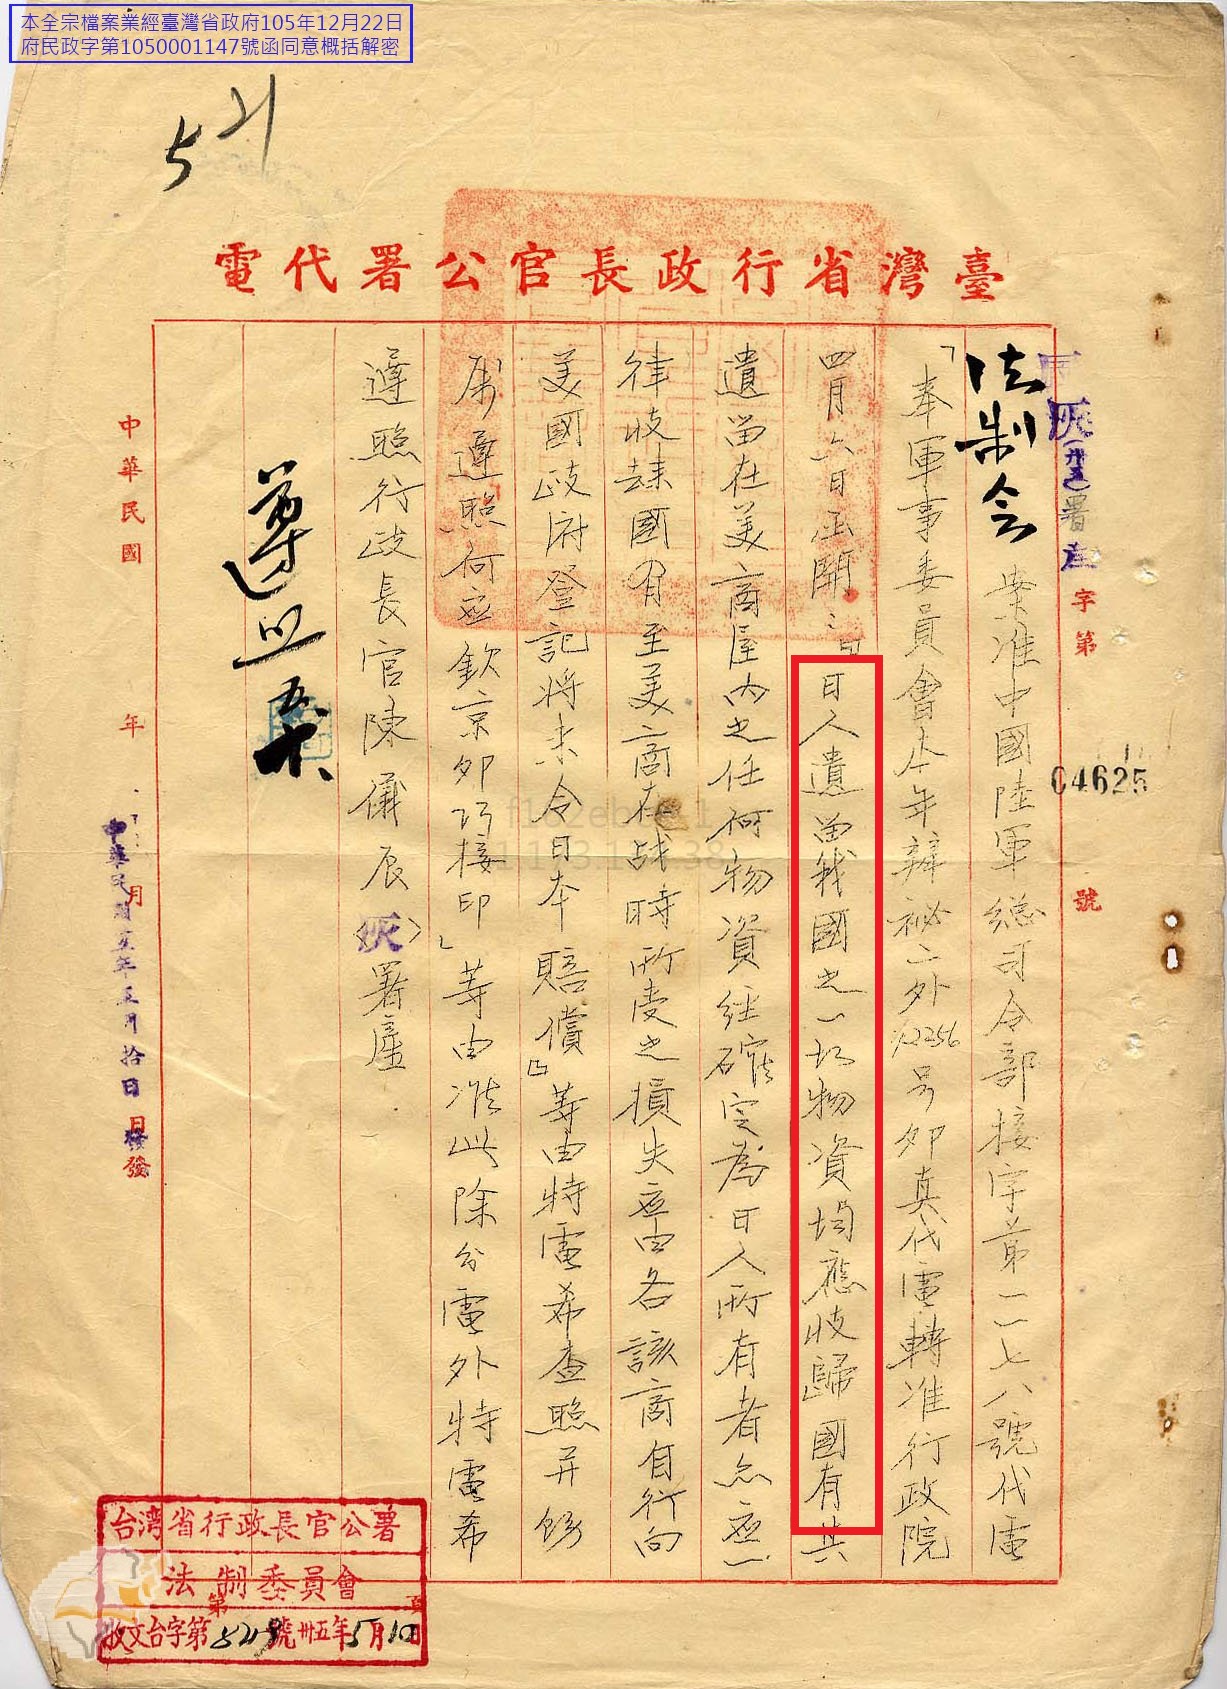 本全宗檔案業經臺灣省政府105年12月22日
府民政字第1050001147號函同意概括解密
臺灣省行政長官公署代電
灰(卅五)署產字第04625號
法制会
業准中國陸軍總司令部接字第一一七八號代電
「奉軍事委員會本年辦祕二外 12256号卯真代電轉准行政院
四月六日函開「日人遺留我國之一切物資均應收歸國有其
遺留在美商屋內之任何物資經確定為日人所有者亦应一
律收歸國有至美商在战時所受之損失应由各該商自行向
美國政府登記將來令日本賠償」等由特電希查照并飭
属遵照何应欽京卯巧接印」等由准此除分電外特電希
遵照行政長官陳儀辰(灰)署產
遵照
中華民國 年 月 日發
中華民國卅五年五月拾日 發
台湾省行政長官公署
法制委員會
收文台字第 號卅五年5月10日